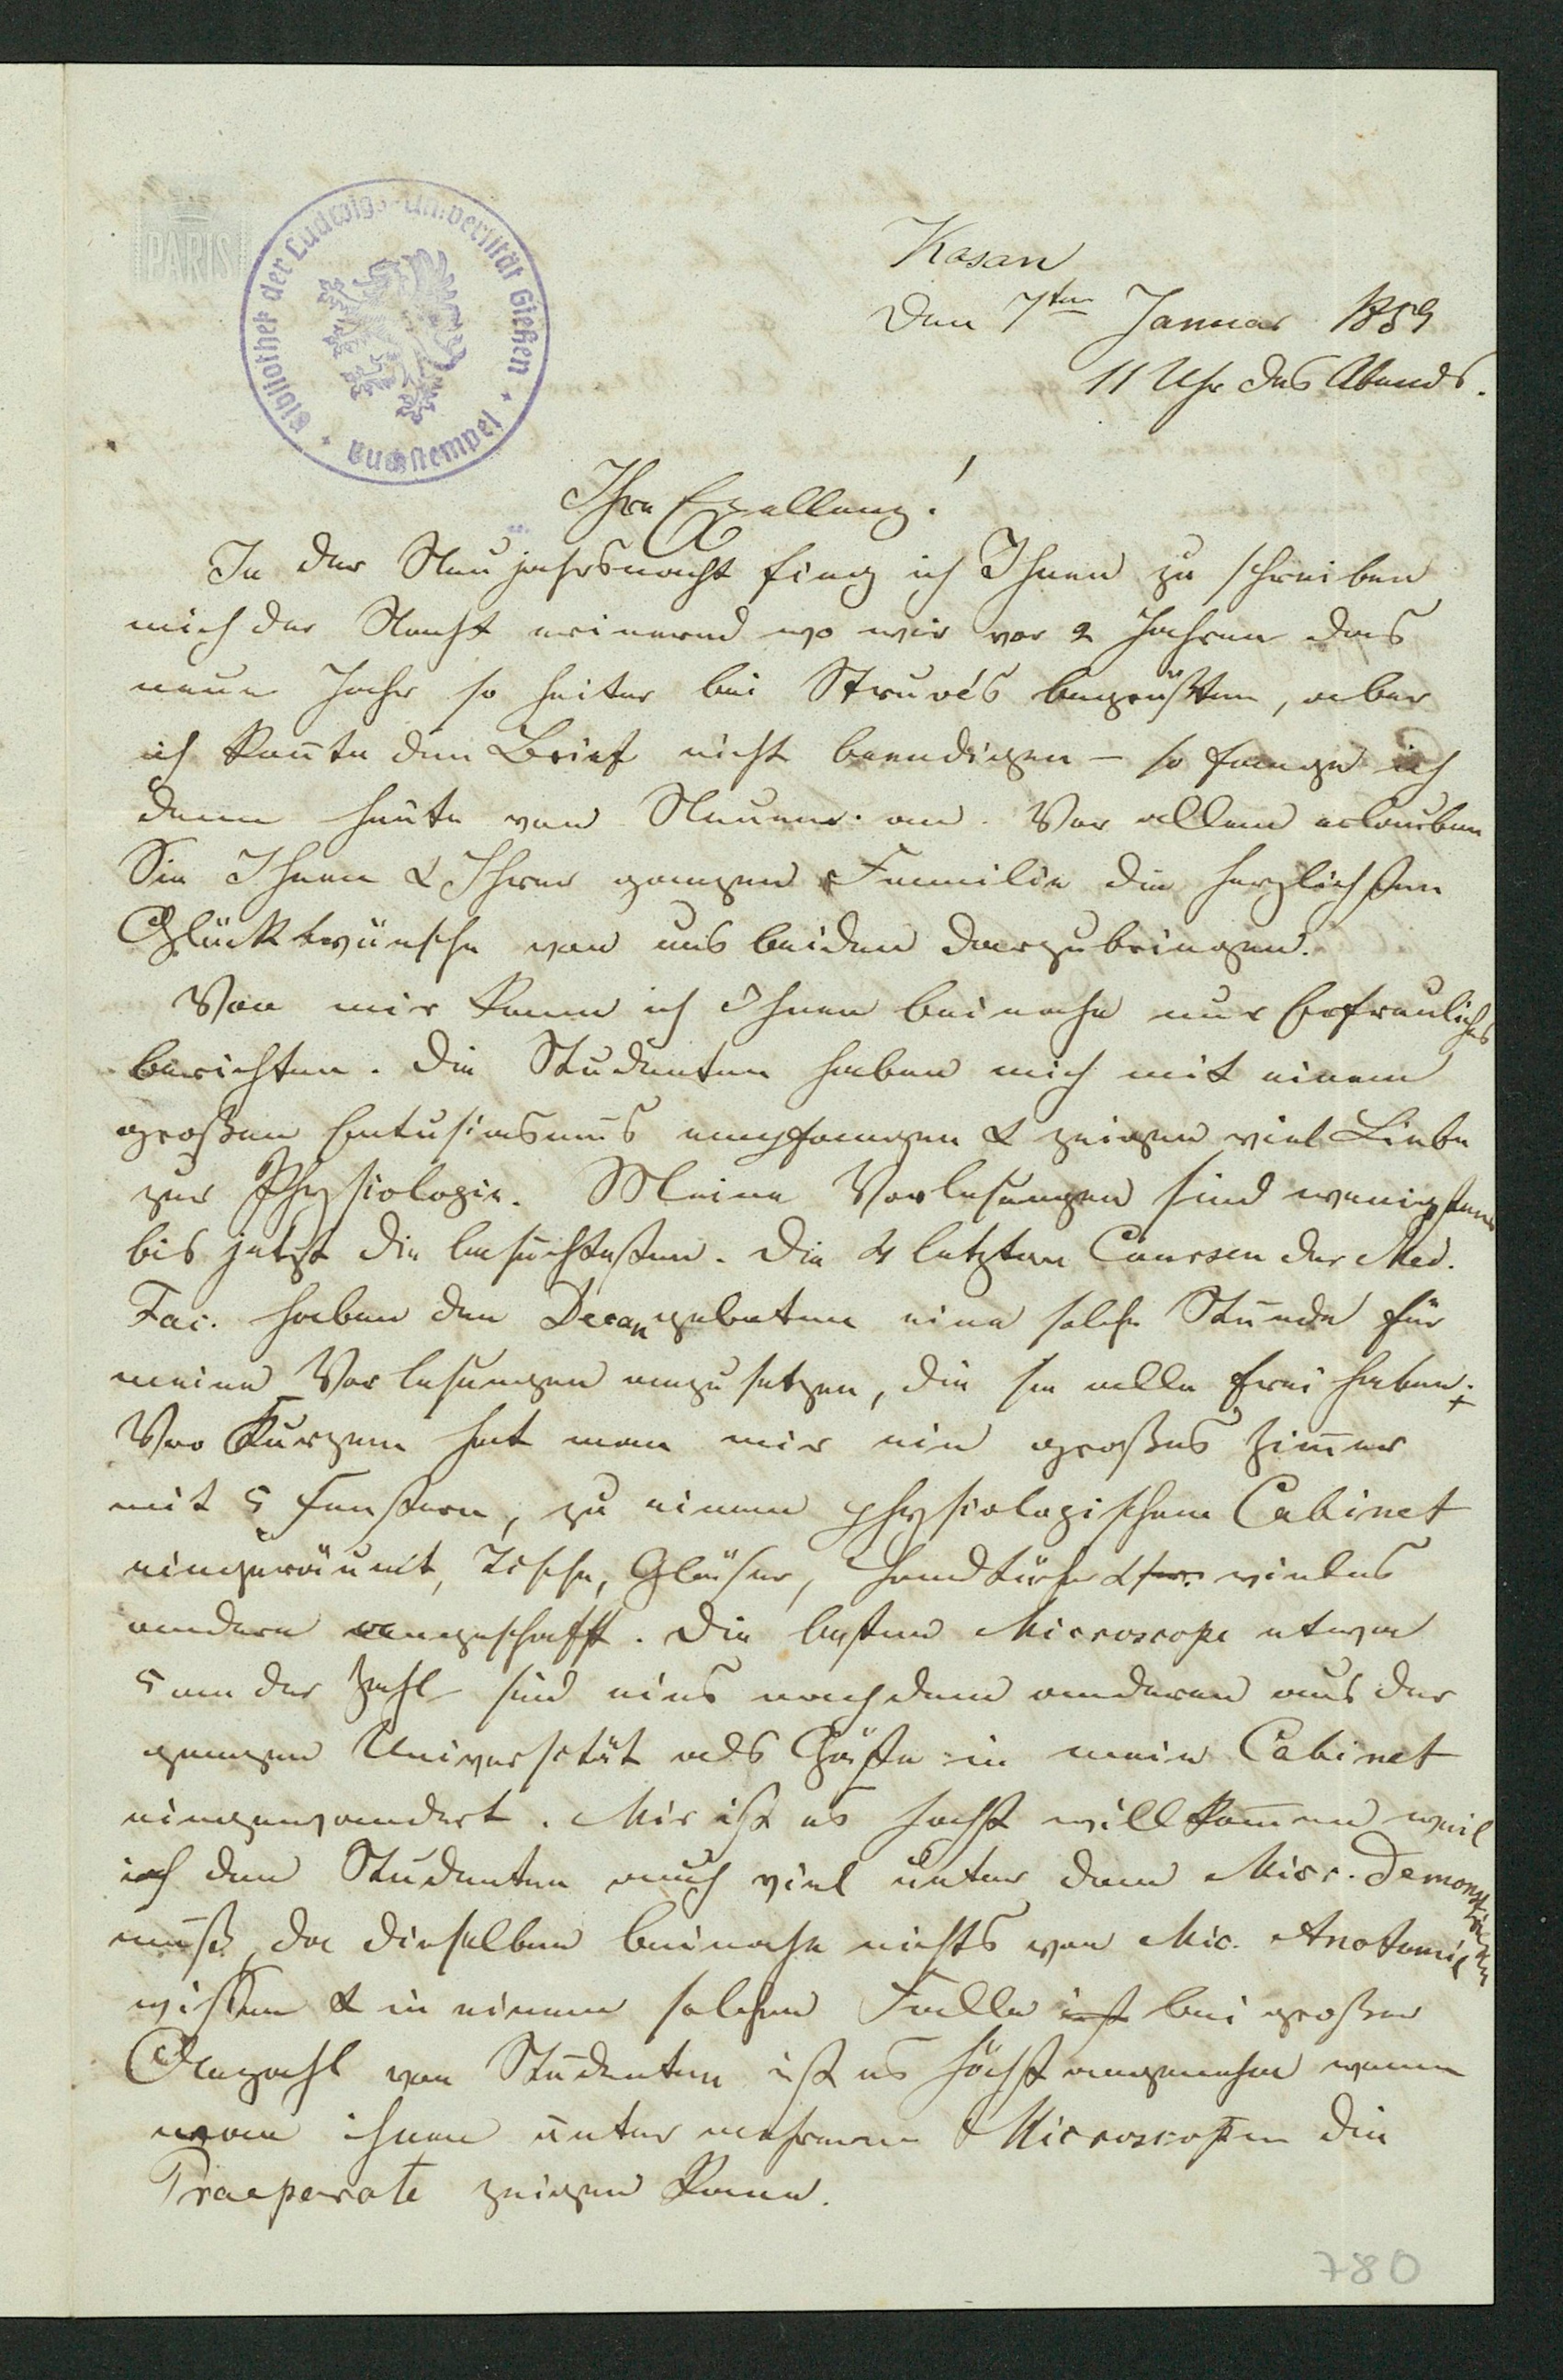 PARIS
Bibliothek der Ludwigs-Universität Gießen
Buchstempel
Kasan
Den 7ten Januar 1859
11 Uhr des Abends.
Ihre Exzellenz!
In der Neujahrsnacht fing ich Ihnen zu schreiben
mich der Nacht erinernd wo wir vor 2 Jahren das
neue Jahr so heiter bei Struvés begrüßten, aber
ich kon̄te den Brief nicht beendigen – so fange ich
denn heute von Neuem an. Vor allem erlauben
Sie Ihnen & Ihrer ganzen Familie die herzlichsten
Glückwünsche von uns beiden darzubringen.
Von mir kann ich Ihnen beinahe nur Erfreuliches
berichten. Die Studenten haben mich mit einem
großen Entusiasmus empfangen & zeigen viel Liebe
zur Physiologie. Meine Vorlesungen sind wenigstens
bis jetzt die besuchtesten. Die 4 letzten Coursen der Med.
Fac. haben den Decan gebeten eine solche Stunde für
meine Vorlesungen anzusetzen, die sie alle frei haben.
Vor Kurzem hat man mir ein großes Zim̄er
mit 5 Fenstern, zu einem physiologischem Cabinet
eingeräumt, Tische, Gläser, Handtücher & vieles
andere angeschafft. Die besten Microscope etwa
5 an der Zahl sind eins nach dem anderen aus der
ganzen Universität als Gäste in mein Cabinet
eingewandert. Mir ist es höchst willkom̄en weil
ich den Studenten auch viel unter dem Micr. demonstriren
muß, da dieselben beinahe nichts von Mic. Anotomie
wissen & in einem solchen Falle ist bei großer
Anzahl von Studenten ist es höchst angenehm wenn
man ihnen unter mehreren Microscopen die
Praeparate zeigen kann.
780